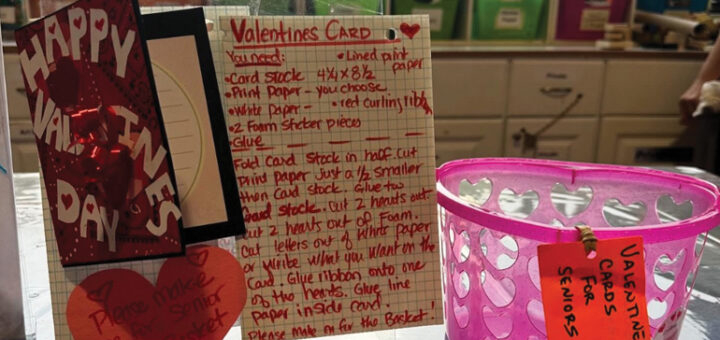 HAPPY
VALENTINES
DAY
Valentines CARD
You need:
• Lined print paper
• Card Stock 4¼ x 8½
• Print Paper - you choose
• White Paper -
• red curling ribb
• 2 Foam Sticker pieces
• Glue
Fold Card Stock in half. Cut
print paper Just a ½ smaller
then Card stock. Glue two
Card stock. Cut 2 hearts out.
Cut 2 hearts out of Foam.
Cut letters out of White Paper
or Write what you want on the
Card. Glue ribbon onto one
of the hearts. Glue line
paper inside Card.
Please make for the Basket!
Please make
for Senior
basket
VALENTINE
CARDS
FOR
SENIORS